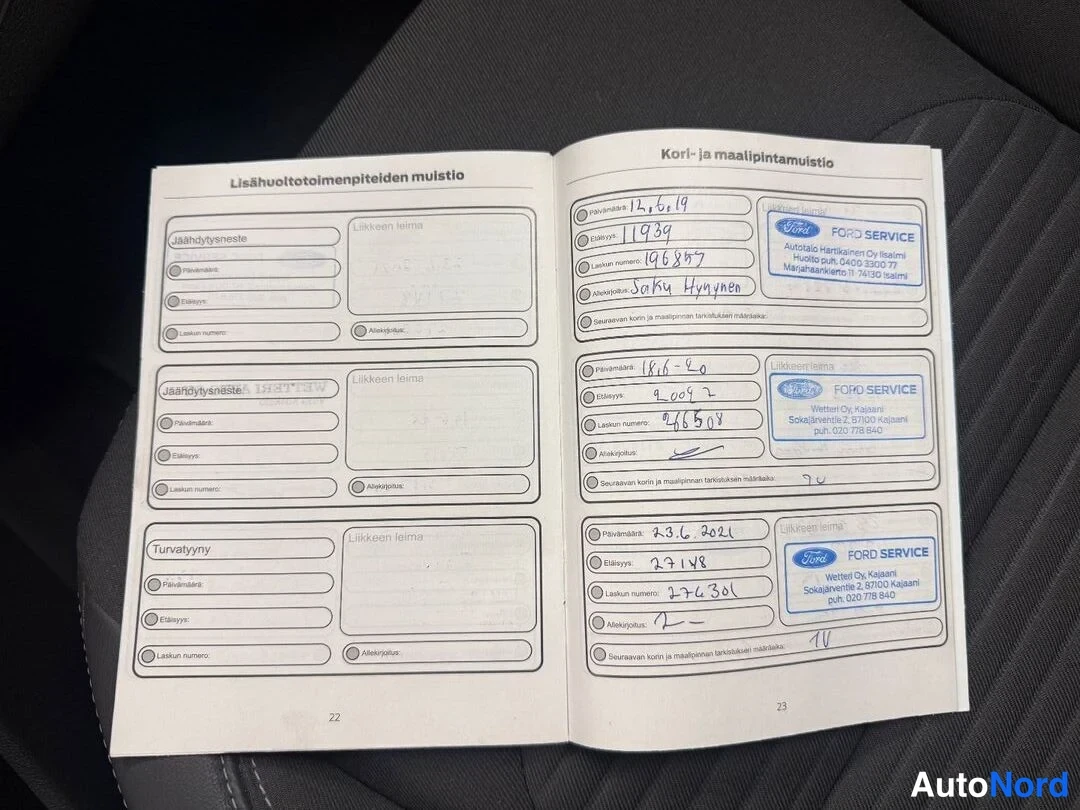 Lisähuoltotoimenpiteiden muistio
Jäähdytysneste
Päivämäärä:
Etäisyys:
Laskun numero:
Liikkeen leima
Allekirjoitus:
Jäähdytysneste:
Päivämäärä:
Etäisyys:
Laskun numero:
Liikkeen leima
Allekirjoitus:
Turvatyyny
Päivämäärä:
Etäisyys:
Laskun numero:
Liikkeen leima
Allekirjoitus:
22
Kori- ja maalipintamuistio
Päivämäärä: 12.6.19
Etäisyys: 11939
Laskun numero: 196857
Allekirjoitus: Saku Hynynen
Seuraavan korin ja maalipinnan tarkistuksen määräaika:
Liikkeen leima
Ford FORD SERVICE
Autotalo Hartikainen Oy Iisalmi
Huolto puh. 0400 3300 77
Marjahaankierto 11 74130 Iisalmi
Päivämäärä: 18.6-20
Etäisyys: 20092
Laskun numero: 266508
Allekirjoitus:
Seuraavan korin ja maalipinnan tarkistuksen määräaika:
Liikkeen leima
Ford FORD SERVICE
Wetteri Oy, Kajaani
Sokajärventie 2, 87100 Kajaani
puh. 020 778 840
Päivämäärä: 23.6.2021
Etäisyys: 27148
Laskun numero: 274301
Allekirjoitus:
Seuraavan korin ja maalipinnan tarkistuksen määräaika: 1V
Liikkeen leima
Ford FORD SERVICE
Wetteri Oy, Kajaani
Sokajärventie 2, 87100 Kajaani
puh. 020 778 840
23
AutoNord